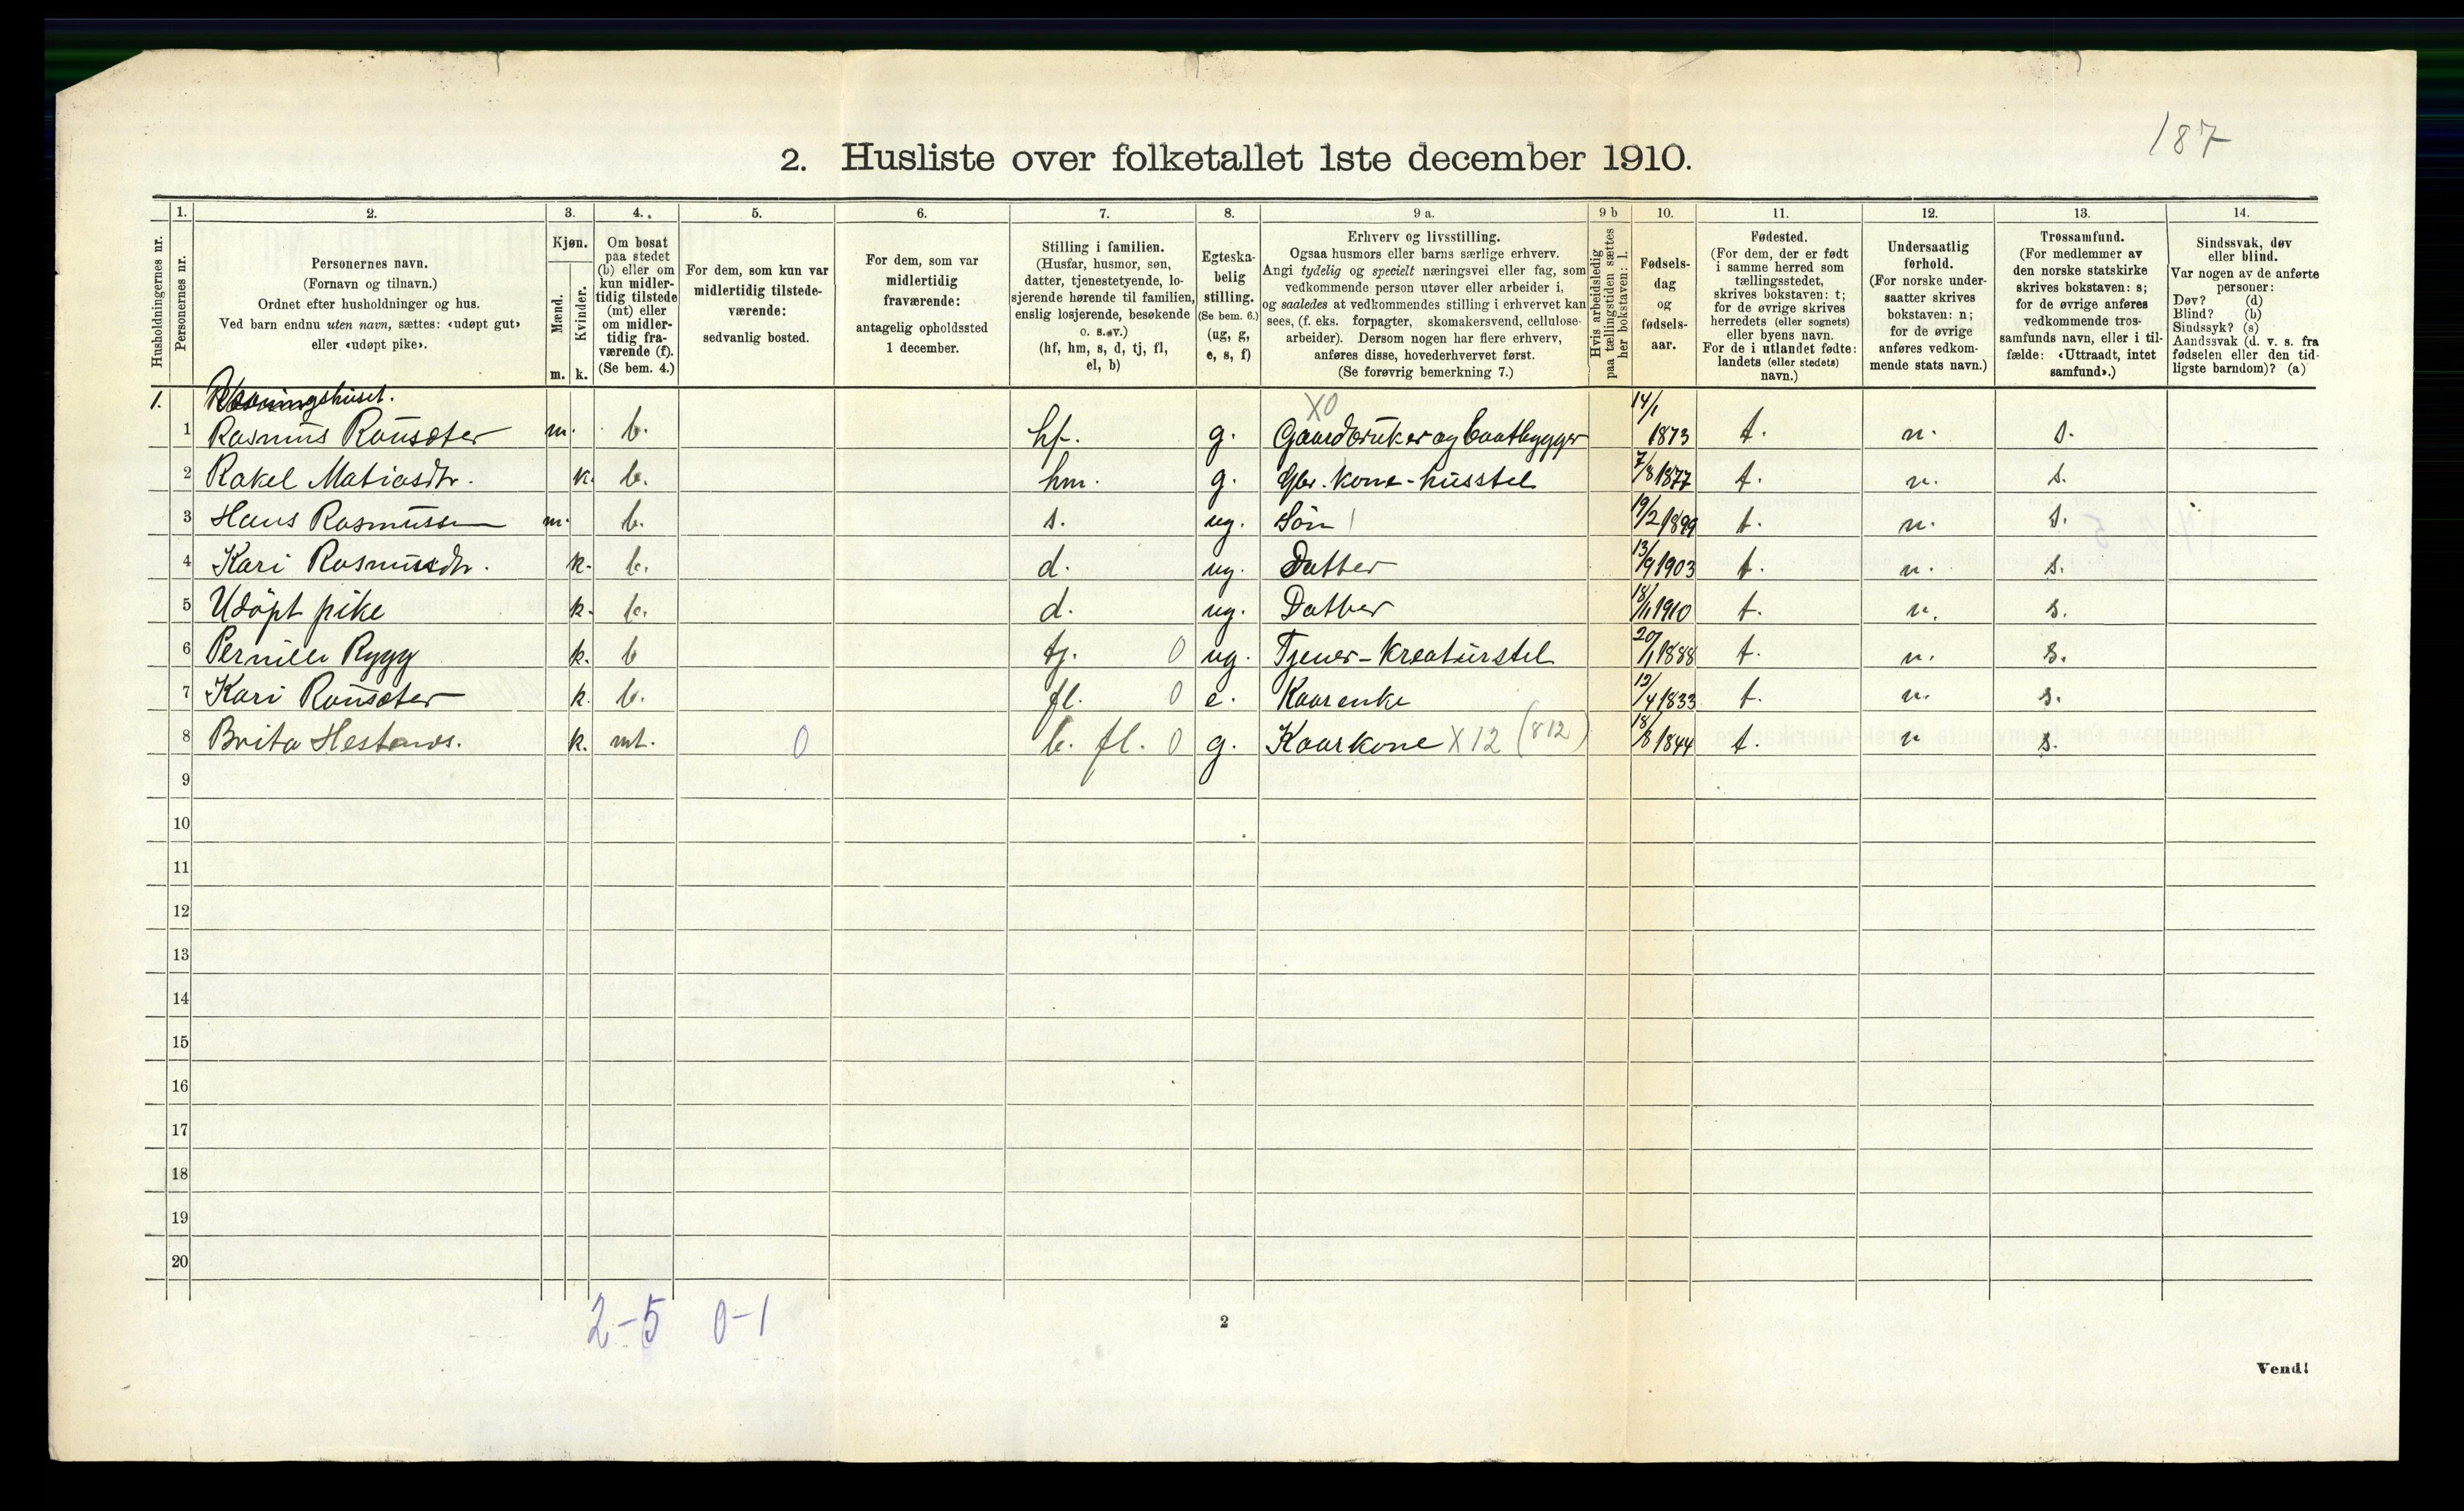 187
2. Husliste over folketallet 1ste december 1910.
Husholdningernes nr.
1.
Personernes nr.
2.
Personernes navn.
(Fornavn og tilnavn.)
Ordnet efter husholdninger og hus.
Ved barn endnu uten navn, sættes: «udøpt gut»
eller «udøpt pike».
3.
Kjøn.
Mænd.
Kvinder.
m. k.
4.
Om bosat
paa stedet
(b) eller om
kun midler-
tidig tilstede
(mt) eller
om midler-
tidig fra-
værende (f).
(Se bem. 4.)
5.
For dem, som kun var
midlertidig tilstede-
værende:
sedvanlig bosted.
6.
For dem, som var
midlertidig
fraværende:
antagelig opholdssted
1 december.
7.
Stilling i familien.
(Husfar, husmor, søn,
datter, tjenestetyende, lo-
sjerende hørende til familien,
enslig losjerende, besøkende
o. s. v.)
(hf, hm, s, d, tj, fl,
el, b)
8.
Egteska-
belig
stilling.
(Se bem. 6.)
(ug, g,
e, s, f)
9 a.
Erhverv og livsstilling.
Ogsaa husmors eller barns særlige erhverv.
Angi tydelig og specielt næringsvei eller fag, som
vedkommende person utøver eller arbeider i,
og saaledes at vedkommendes stilling i erhvervet kan
sees, (f. eks. forpagter, skomakersvend, cellulose-
arbeider). Dersom nogen har flere erhverv,
anføres disse, hovederhvervet først.
(Se forøvrig bemerkning 7.)
9 b
Hvis arbeidsledig
paa tællingstiden sættes
her bokstaven: l.
10.
Fødsels-
dag
og
fødsels-
aar.
11.
Fødested.
(For dem, der er født
i samme herred som
tællingsstedet,
skrives bokstaven: t;
for de øvrige skrives
herredets (eller sognets)
eller byens navn.
For de i utlandet fødte:
landets (eller stedets)
navn.)
12.
Undersaatlig
forhold.
(For norske under-
saatter skrives
bokstaven: n;
for de øvrige
anføres vedkom-
mende stats navn.)
13.
Trossamfund.
(For medlemmer av
den norske statskirke
skrives bokstaven: s;
for de øvrige anføres
vedkommende tros-
samfunds navn, eller i til-
fælde: «Uttraadt, intet
samfund».)
14.
Sindssvak, døv
eller blind.
Var nogen av de anførte
personer:
Døv? (d)
Blind? (b)
Sindssyk? (s)
Aandssvak (d. v. s. fra
fødselen eller den tid-
ligste barndom)? (a)
1. XO
1 Rasmus Rousæter m. b. hf. g. Gaardbruker og baatbygger 14/1 1873 t. n. s.
2 Rakel Matiasdtr. k. b. hm. g. Gbr. kone-husstel 7/8 1877 t. n. s.
3 Hans Rasmussen m. b. s. ug. Søn 19/2 1899 t. n. s.
4 Kari Rasmusdtr. k. b. d. ug. Datter 13/9 1903 t. n. s.
5 Udøpt pike k. b. d. ug. Datter 18/11 1910 t. n. s.
6 Pernille Rygg k. b tj. 0 ug. Tjener-kreaturstel 20/1 1888 t. n. s.
7 Kari Rousæter k. b. fl. 0 e. Kaarenke 12/4 1833 t. n. s.
8 Brita Hestenes. k. mt. 0 b. fl. 0 g. Kaarkone X 12 (812) 18/8 1844 t. n s.
9
10
11
12
13
14
15
16
17
18
19
20
2-5 0-1
2
Vend!